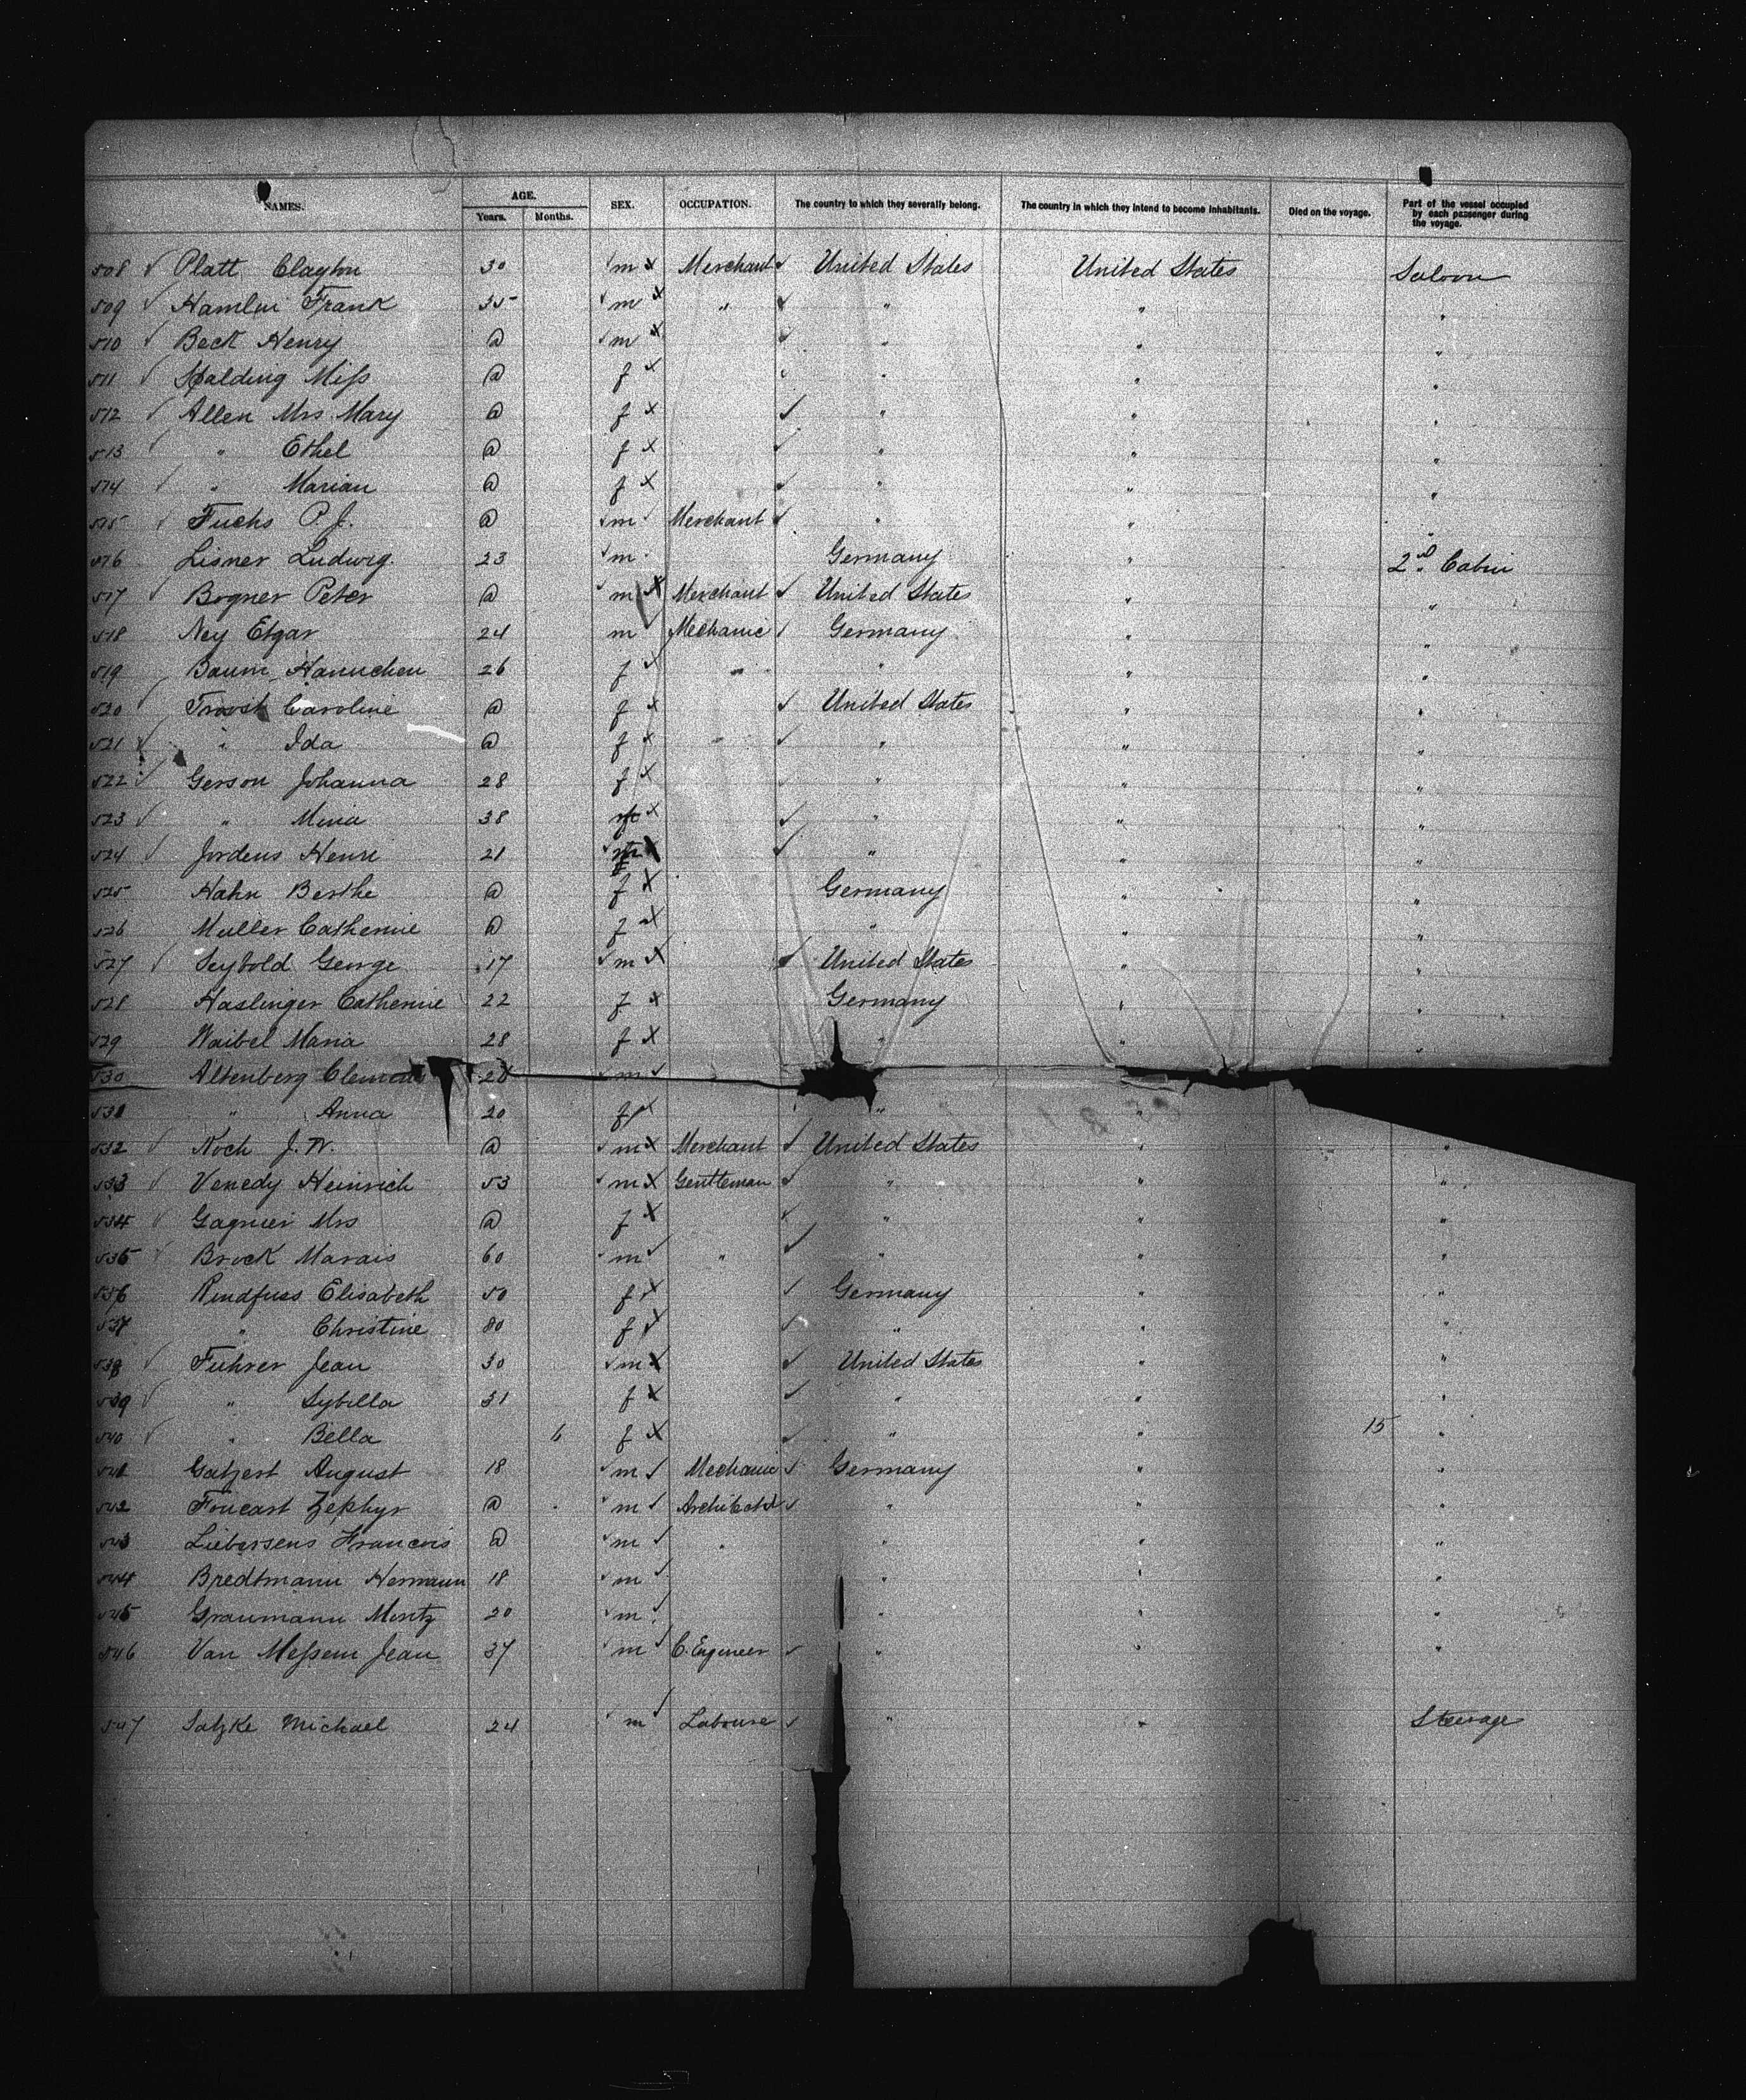 NAMES. AGE. Years. Months. SEX. OCCUPATION. The country to which they severally belong. The country in which they intend to become inhabitants. Died on the voyage. Part of the vessel occupied by each passenger during the voyage.
508 Platt Clayton 30 m Merchant United States United States Saloon
509 Hamlin Frank 35 m " " " "
510 Beck Henry @ m " " "
511 Spalding Miss @ f " " "
512 Allen Mrs. Mary @ f " " "
513 " Ethel @ f " " "
514 " Marian @ f " " "
515 Fuchs P. J. @ m Merchant " " "
516 Lisner Ludwig. 23 m Germany " 2nd Cabin
517 Bogner Peter @ m Merchant United States " "
518 Ney Edgar 24 m Mechanic Germany " "
519 Baum Hannchen 26 f " " "
520 Troost Caroline @ f United States " "
521 " Ida @ f " " "
522 Gerson Johanna 28 f " " "
523 " Mina 38 " " "
524 Jordens Henri 21 " " "
525 Hahn Berthe @ f Germany " "
526 Muller Catherine @ f " " "
527 Seybold George 17 m United States " "
528 Haslinger Catherine 22 f Germany " "
529 Waibel Maria 28 f " " "
530 Altenberg Clemens 28 m
531 " Anna 20 f " "
532 Koch J. W. @ m Merchant United States " "
533 Venedy Heinrich 53 m Gentleman " " "
534 Gagnier Mrs @ f " " "
535 Brock Marais 60 m " " " "
536 Rindfuss Elisabeth 50 f Germany " "
537 " Christine 80 f " " "
538 Fuhrer Jean 30 m United States " "
539 " Sybilla 31 f " " "
540 " Bella 6 f " " 15 "
541 Gatzert August 18 m Mechanic Germany " "
542 Foucart Zephyr @ m Architect " " "
543 Liebersens Francois @ m " " " "
544 Bredtmann Hermann 18 m " " "
545 Graumann Moritz 20 m " " "
546 Van Messem Jean 37 m C. Engineer " " "
547 Satzke Michael 24 m Labourer " " Steerage